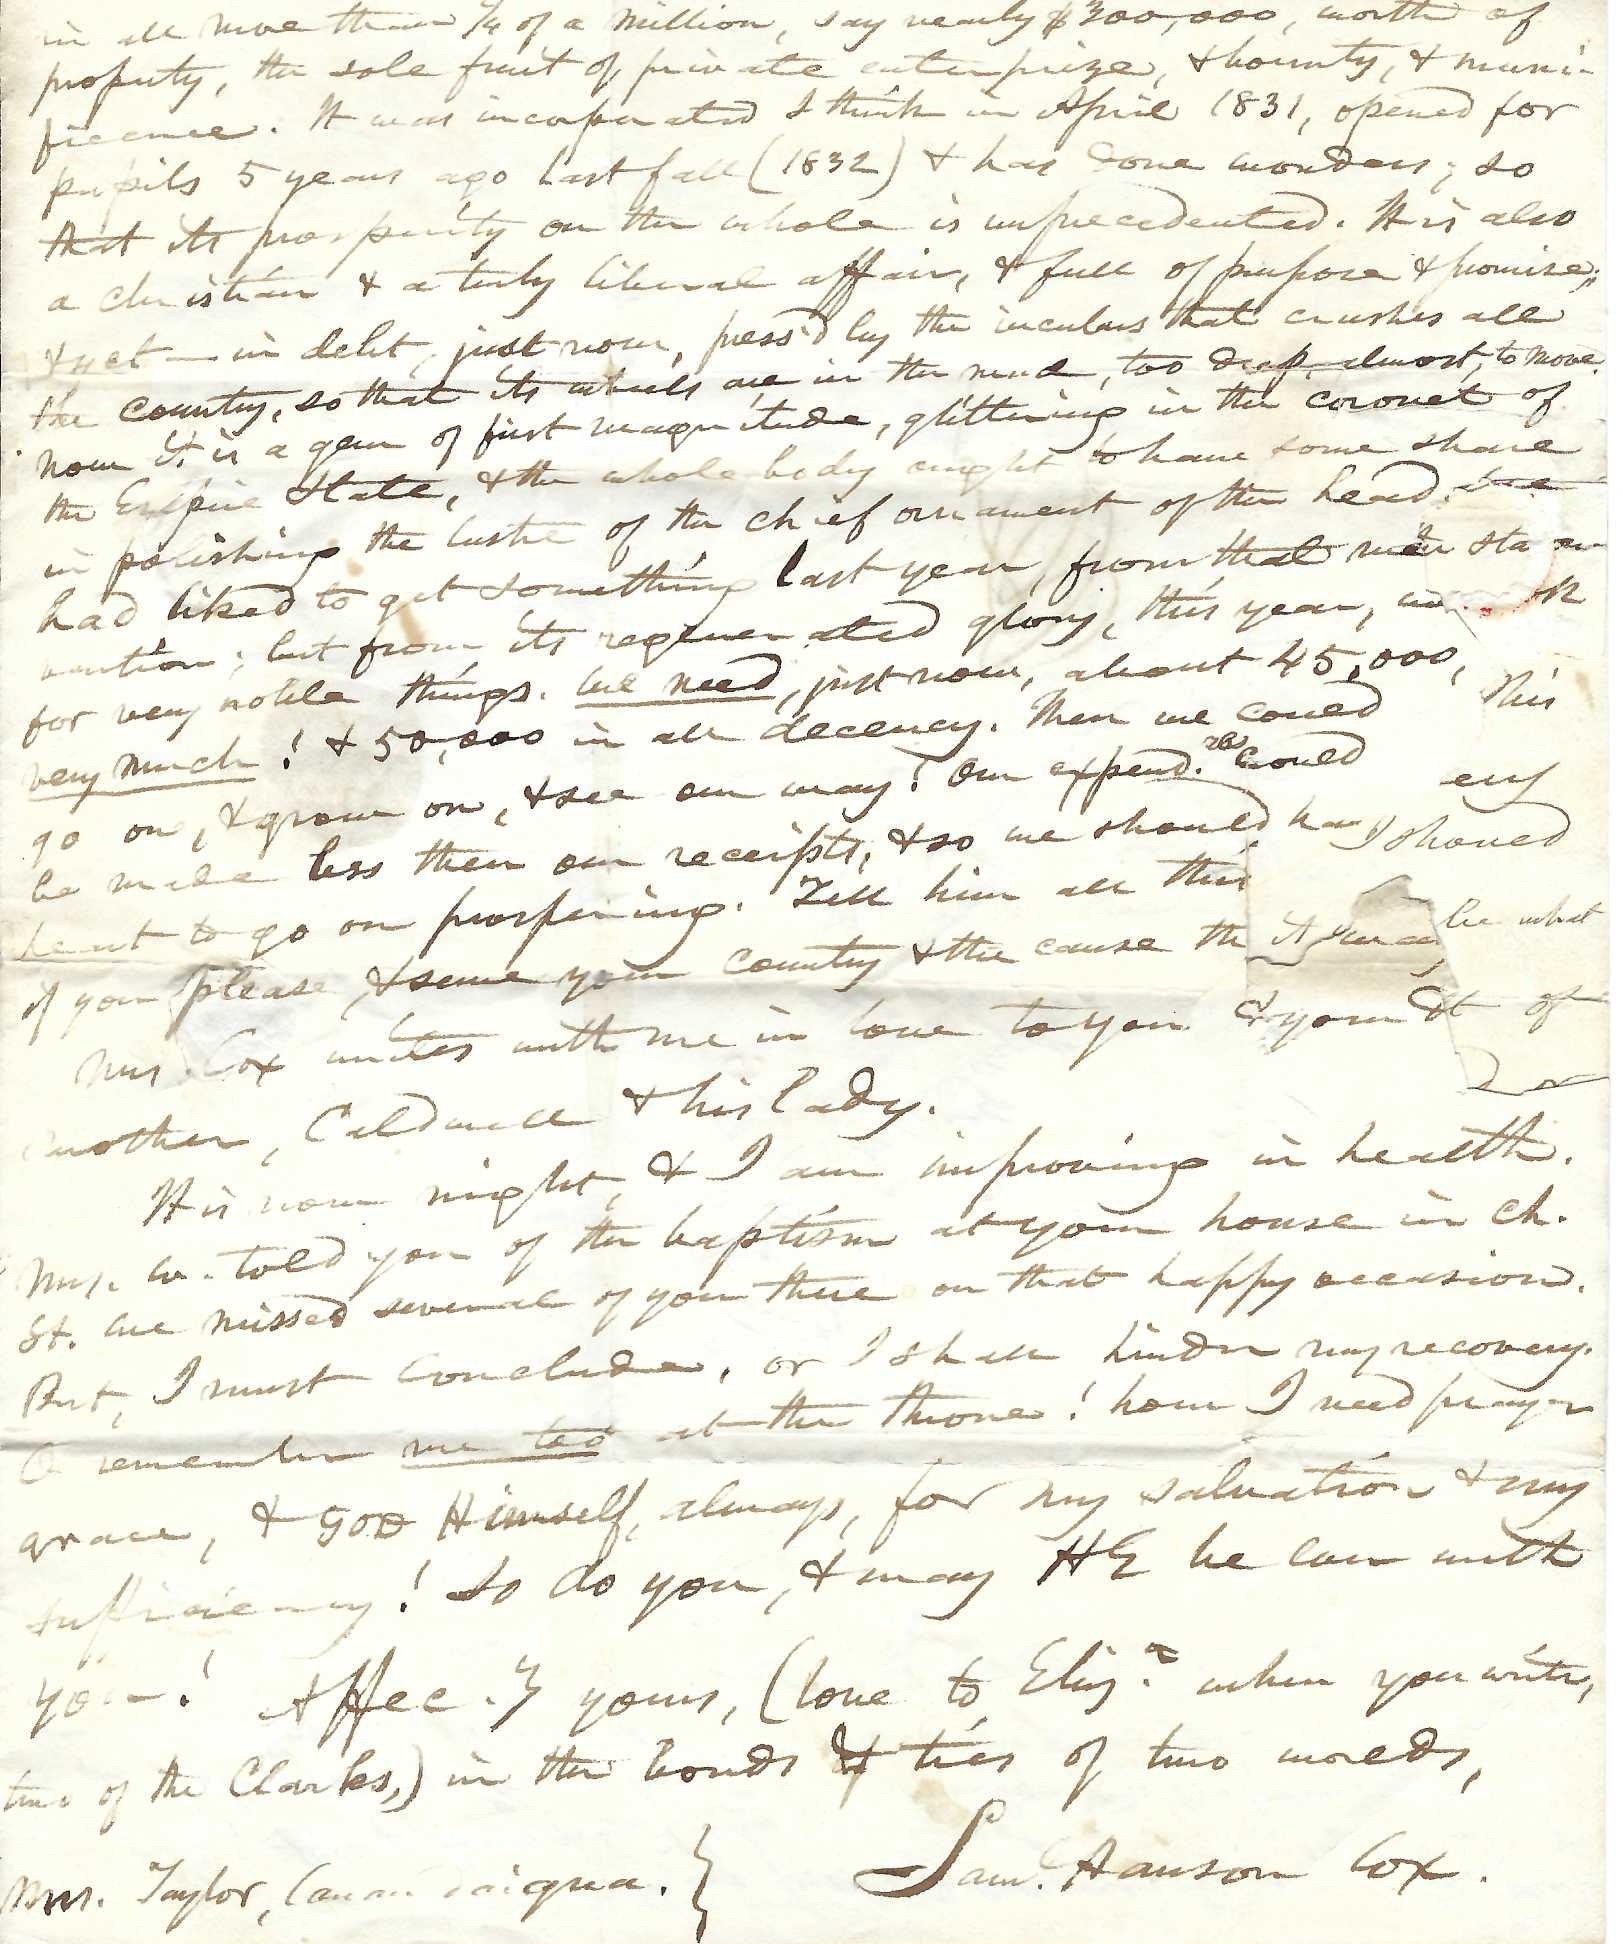 in all more than ¼ of a million, say nearly $300,000, worth of
property, the sole fruit of private enterprize, & bounty, & muni-
ficence. It was incorporated I think in April 1831, opened for
pupils 5 years ago last fall (1832) & has done wonders; so
that its prosperity on the whole is unprecedented. It is also
a christian & a truly liberal affair, & full of purpose & promise;
& yet — in debt, just now, press'd by the incubus that crushes all
the country, so that its wheels are in the mud, too deep, almost, to move.
now it is a gem of first magnitude, glittering in the coronet of
the Empire State, & the whole body ought to have some share
in polishing the lustre of the chief ornament of the head. we
had liked to get something last year, from that
vention; but from its regenerated glory, this year, we look
for very noble things. We need, just now, about 45,000, this
very much! & 50,000 in all decency. Then we could
go on, & grow on, & see our way! Our expend.res could
be made less then our receipts, & so we should have I should
to go on prospering. Tell him all this
if you please, & serve your country & the cause th it may be what
Mrs. Cox unites with me in love to you & your of
mother, Caldwell & his lady.
It is now night, & I am improving in health.
Mrs. C. told you of the baptism at your house in Ch.
St. We missed several of you there on that happy occasion.
But, I must conclude, or I shall hinder my recovery.
O remember me too at the throne! how I need prayer
grace, & GOD Himself, always, for my salvation & my
sufficiency! So do you, & may HE be can with
you! Affec.y yours, (love to Eliz.a when you write,
two of the Clarks,) in the bonds & ties of two worlds,
Mrs. Taylor, Canandaigua. } Saml. Hanson Cox.